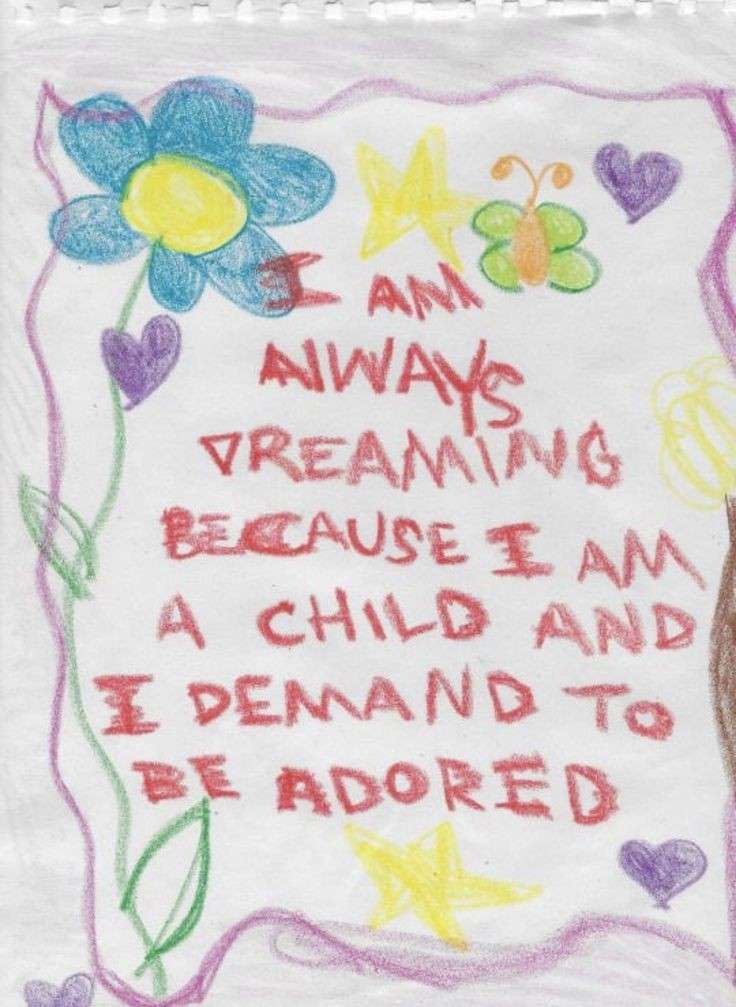 I AM
ALWAYS
DREAMING
BECAUSE I AM
A CHILD AND
I DEMAND TO
BE ADORED